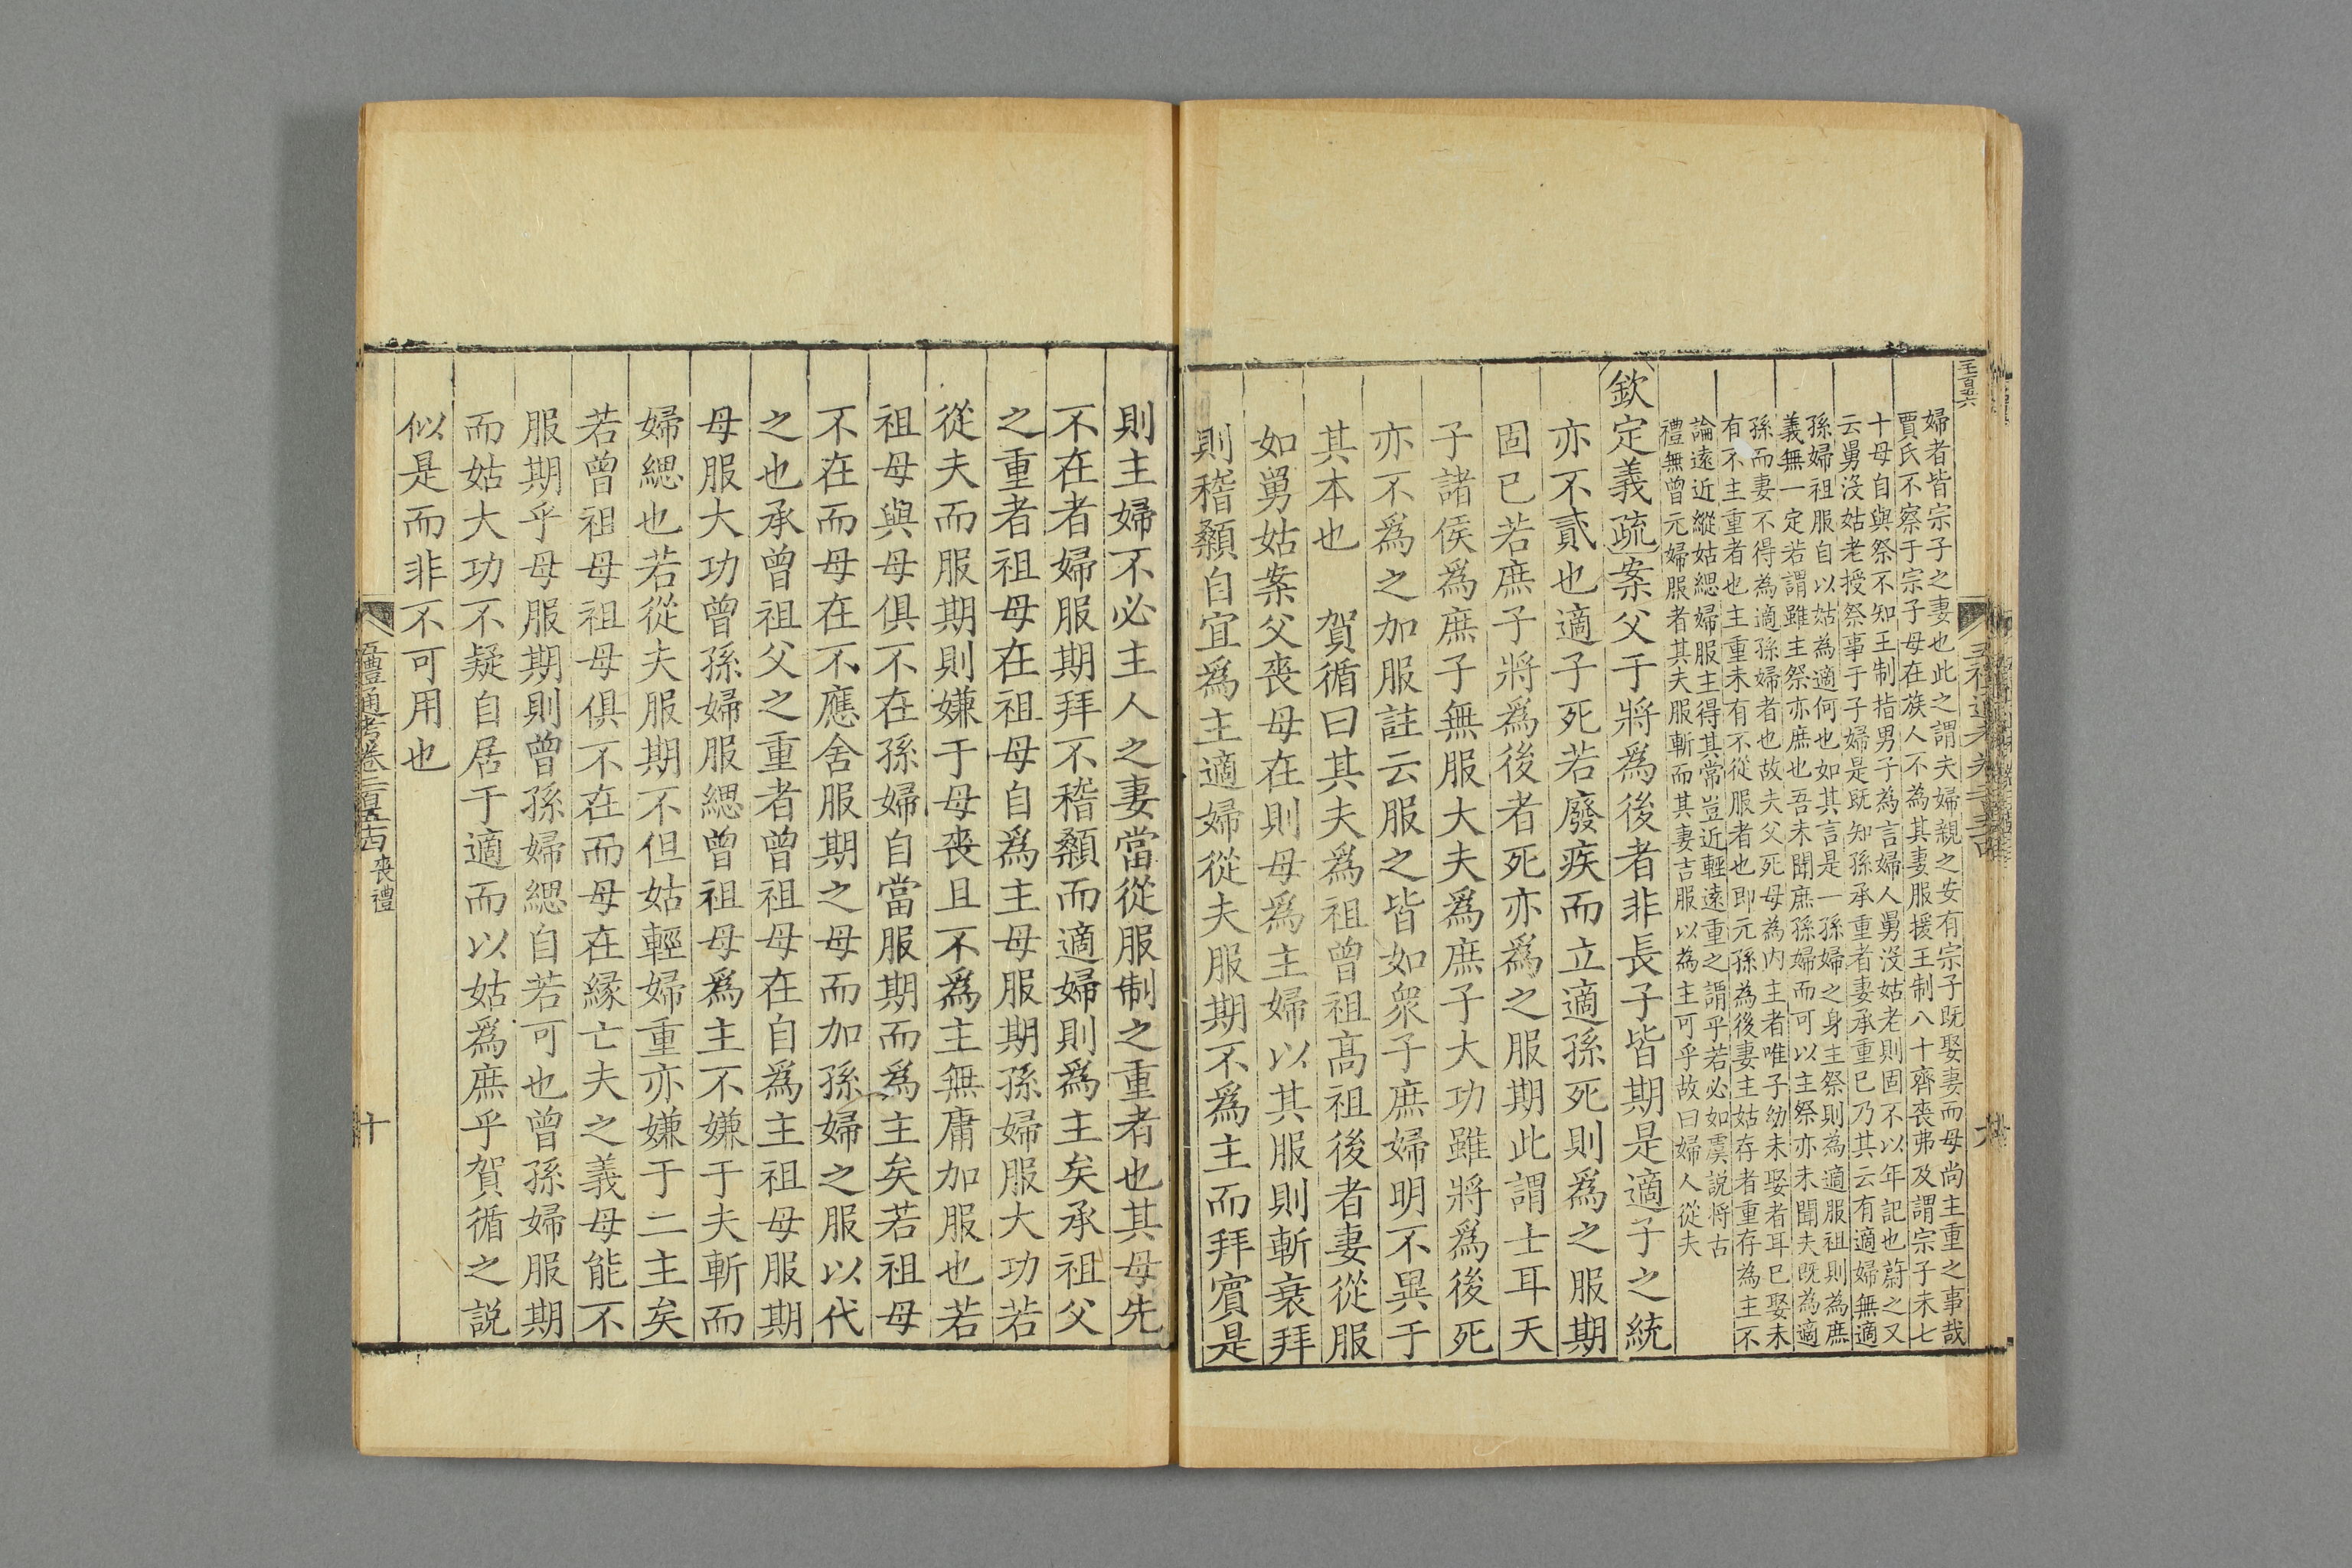 婦者皆宗子之妻也此之謂夫婦親之安有宗子既娶妻而母尚主重之事哉
賈氏不察于宗子母在族人不為其妻服援王制八十齊喪弗及謂宗子未七
十母自與祭不知王制指男子為言婦人舅沒姑老則固不以年記也蔚之又
云舅沒姑老授祭事于子婦是既知孫承重者妻承重已乃其云有適婦無適
孫婦祖服自以姑為適何也如其言是一孫婦之身主祭則為適服祖則為庶
義無一定若謂雖主祭亦庶也吾未聞庶孫婦而可以主祭亦未聞夫既為適
孫而妻不得為適孫婦者也故夫父死母為內主者唯子幼未娶者耳已娶未
有不主重者也主重未有不從服者也即元孫為後妻主姑存者重存為主不
論遠近縱姑緦婦服主得其常豈近輕遠重之謂乎若必如虞説将古
禮無曾元婦服者其夫服斬而其妻吉服以為主可乎故曰婦人從夫
欽定義疏案父于將爲後者非長子皆期是適子之統
亦不貳也適子死若廢疾而立適孫死則爲之服期
固已若庶子將爲後者死亦爲之服期此謂士耳天
子諸侯爲庶子無服大夫爲庶子大功雖將爲後死
亦不爲之加服註云服之皆如衆子庶婦明不異于
其本也　賀循曰其夫爲祖曾祖高祖後者妻從服
如舅姑案父喪母在則母爲主婦以其服則斬衰拜
則稽顙自宜爲主適婦從夫服期不爲主而拜賓是
則主婦不必主人之妻當從服制之重者也其母先
不在者婦服期拜不稽顙而適婦則爲主矣承祖父
之重者祖母在祖母自爲主母服期孫婦服大功若
從夫而服期則嫌于母喪且不爲主無庸加服也若
祖母與母俱不在孫婦自當服期而爲主矣若祖母
不在而母在不應舍服期之母而加孫婦之服以代
之也承曾祖父之重者曾祖母在自爲主祖母服期
母服大功曾孫婦服緦曾祖母爲主不嫌于夫斬而
婦緦也若從夫服期不但姑輕婦重亦嫌于二主矣
若曾祖母祖母俱不在而母在緣亡夫之義母能不
服期乎母服期則曾孫婦緦自若可也曾孫婦服期
而姑大功不疑自居于適而以姑爲庶乎賀循之説
似是而非不可用也
五禮通考卷二百五十四 喪禮
十